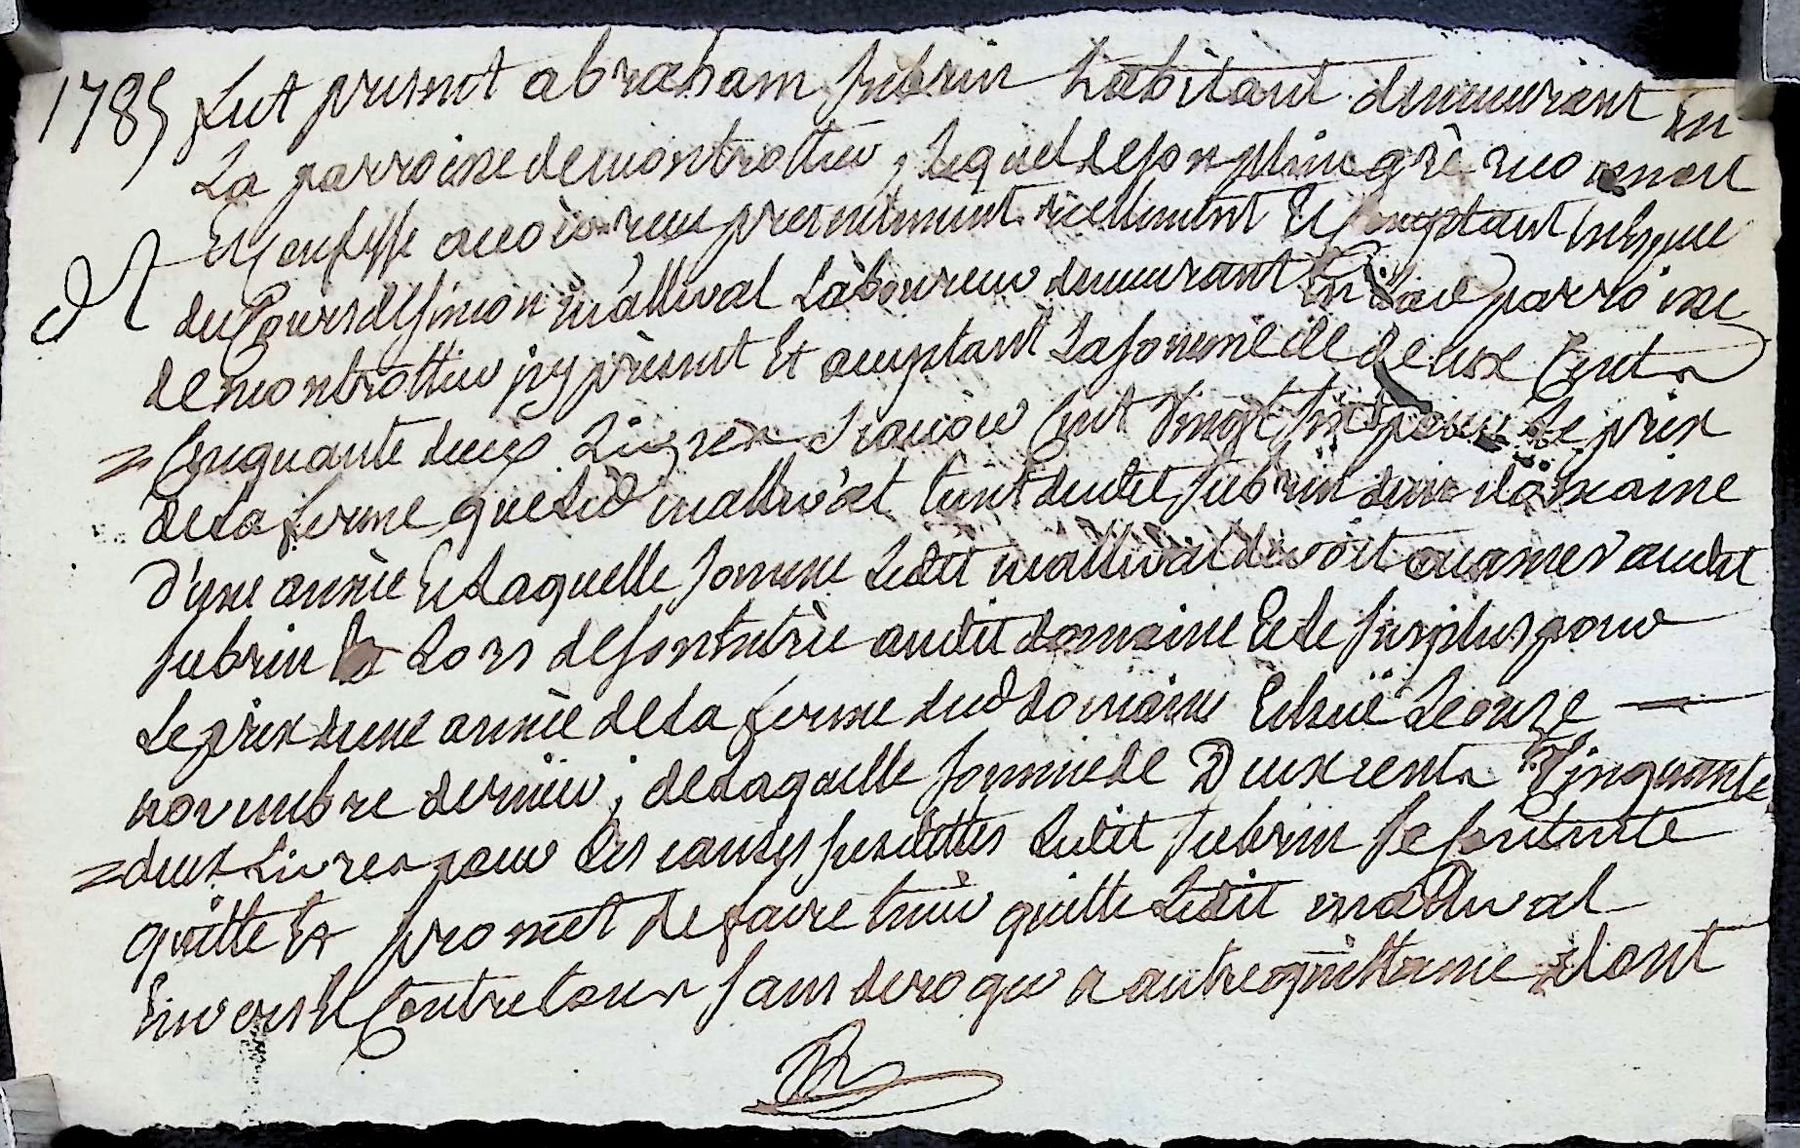 1785 fut present abraham subrin habitant demeurant En
La parroisse demontrottier, Lequel deson plein grè reconnoit
Et Confesse avoir reçu presentement reellement Et Comptant
du Cours desimeon mallival Laboureur demeurant En lad parroisse
demontrottier icy prèsent Et acceptant Lasomme de deux Cents
Cinquante deux Livres Scavoir Cent Vingt six pour Le prix
delaferme queled mallival tient dudit subrin deson domaine
D'une année Et Laquelle somme Ledit mallival devoit avancer audit
subrin Lors desonentrèe audit domaine Et le surplus pour
Le prix dune annèe dela ferme dud domaine Echuë Leonze
novembre dernier; delaquelle somme de Deux cents Cinquante
deux Livres pour Les causes susdittes Ledit subrin secontente
quitte Et promet de faire tenir quitte Ledit mallival
Envers Et Contre tous sans deroger a autre quittance dont